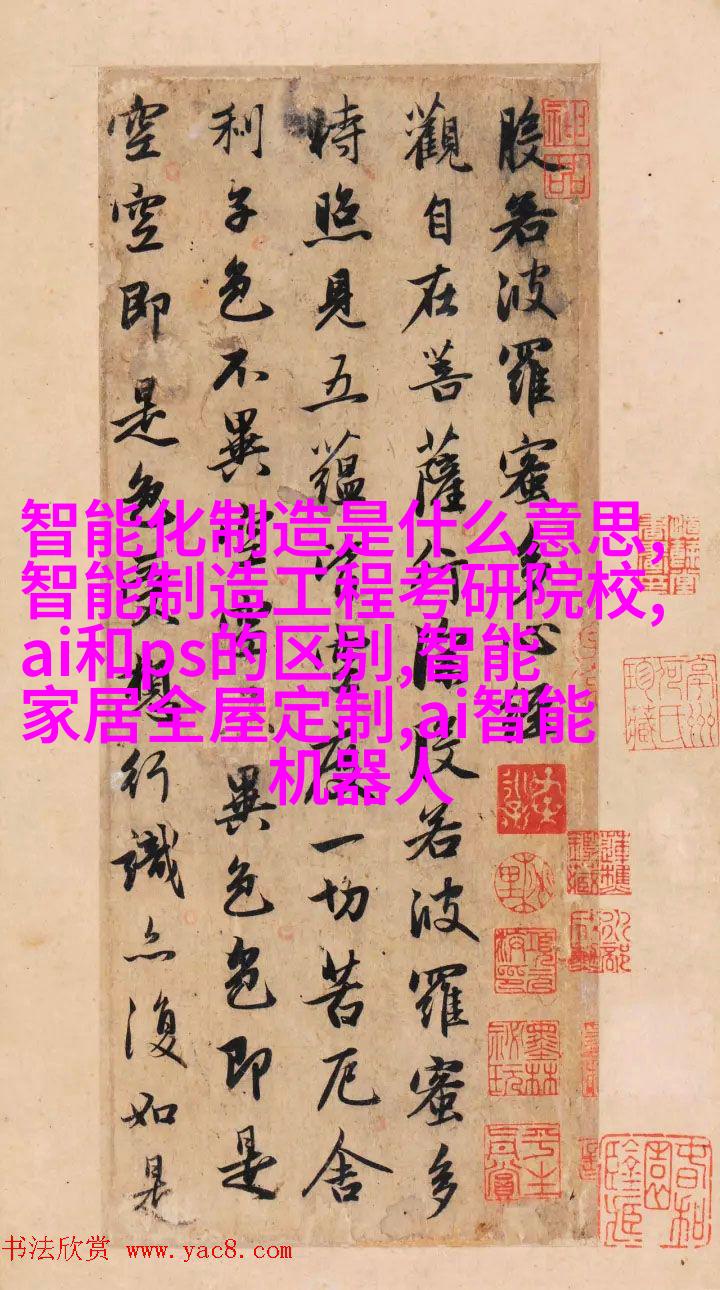 般若波羅蜜多心經
觀自在菩薩行深般若波羅蜜多
時照見五蘊皆空度一切苦厄舍
利子色不異空空不異色色即是
空空即是色受想行識亦復如是
智能化制造是什么意思,
智能制造工程考研院校,
ai和ps的区别,智能
家居全屋定制,ai智能
机器人
书法欣赏 www.yac8.com